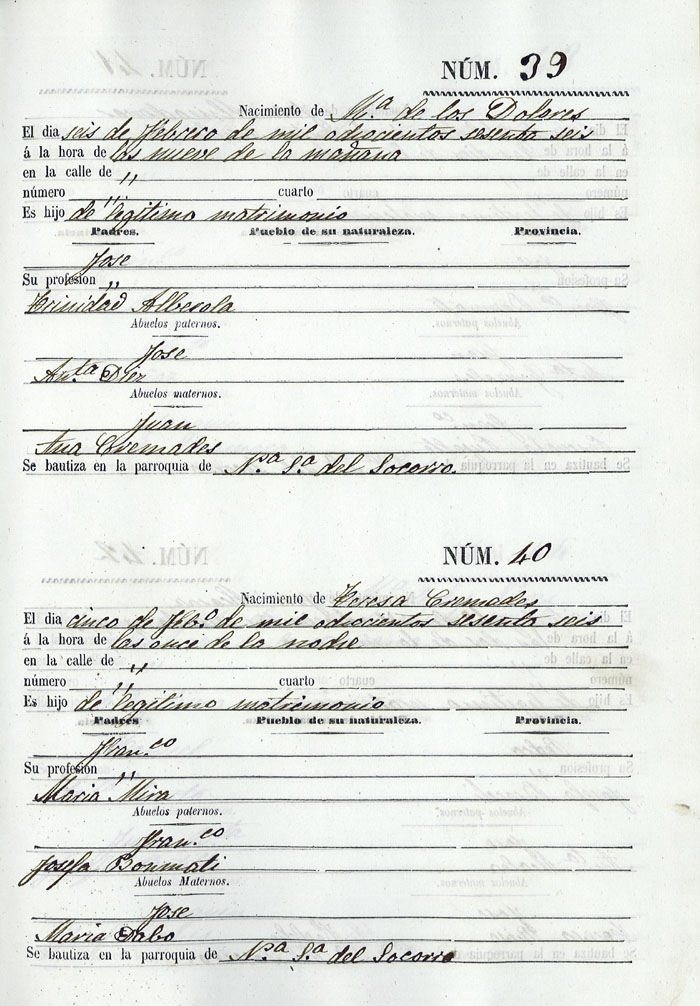 NÚM. 39
Nacimiento de M.ª de los Dolores
El dia seis de Febrero de mil ochocientos sesenta seis
á la hora de las nueve de la mañana
en la calle de "
número " cuarto
Es hijo de legitimo matrimonio
Padres. Pueblo de su naturaleza. Provincia.
Jose
Su profesion "
Trinidad Alberola
Abuelos paternos.
Jose
Ant.ª Diez
Abuelos maternos.
Juan
Ana Cremades
Se bautiza en la parroquia de N.ª S.ª del Socorro.
NÚM. 40
Nacimiento de Teresa Cremades
El dia cinco de Feb.º de mil ochocientos sesenta seis
á la hora de las once de la noche
en la calle de "
número " cuarto
Es hijo de legitimo matrimonio
Padres Pueblo de su naturaleza. Provincia.
Fran.co
Su profesion "
Maria Mira
Abuelos paternos.
Fran.co
Josefa Boumati
Abuelos Maternos.
Jose
Maria Dabo
Se bautiza en la parroquia de N.ª S.ª del Socorro